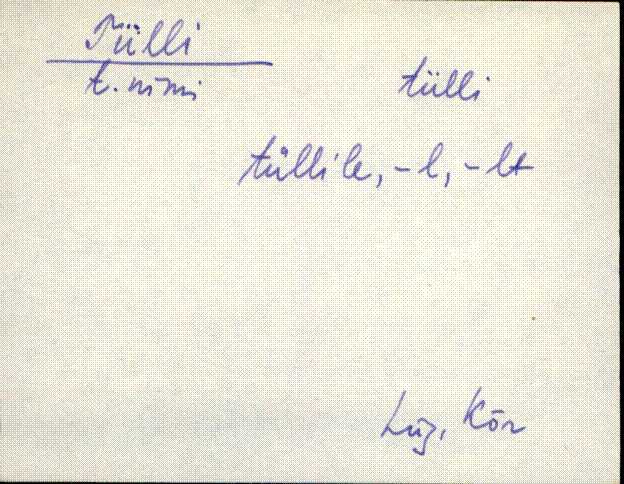 Tülli
t. nimi
tülli
tüllile, -l, -lt
Lüg, Kõr